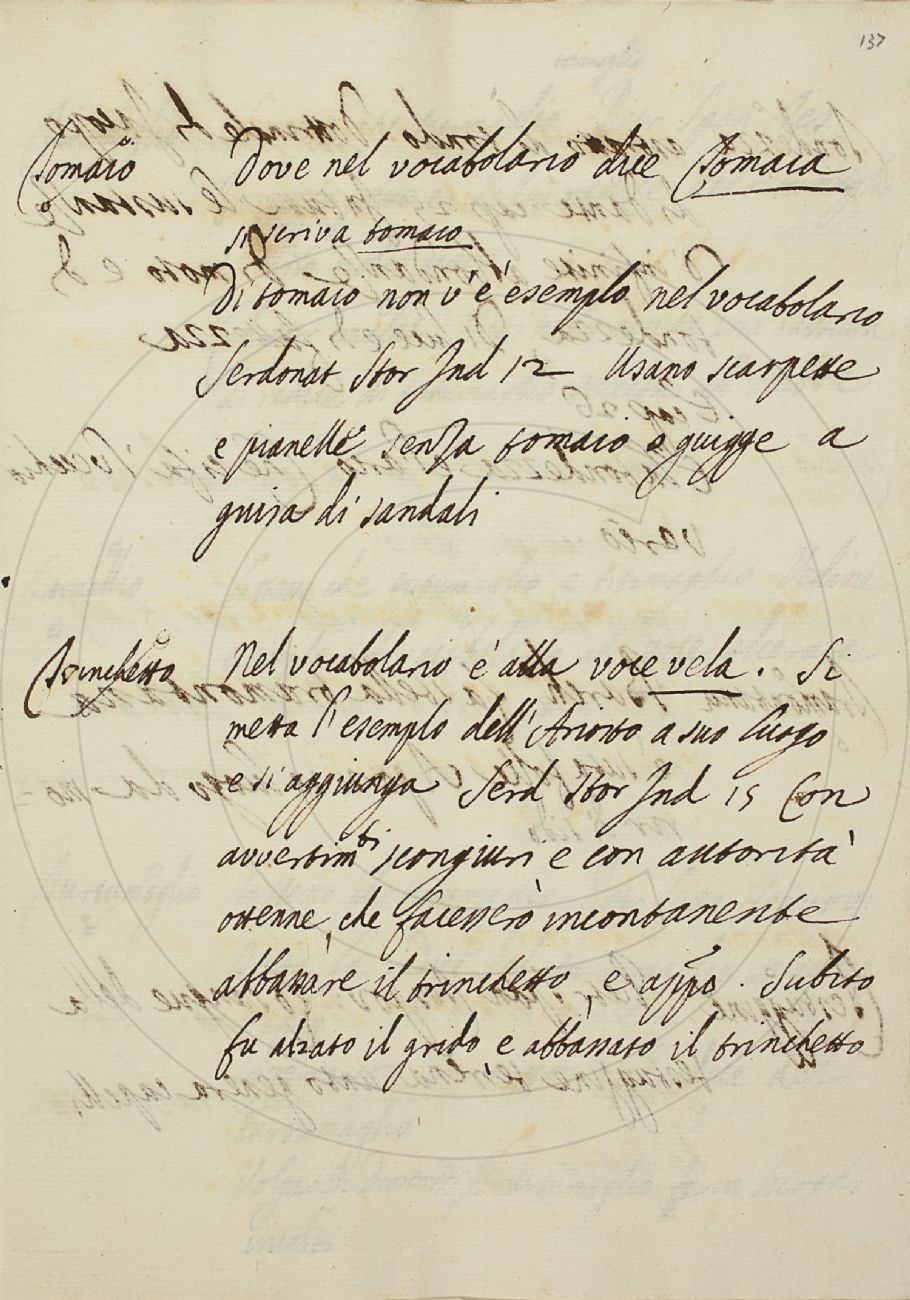 137
Tomaio Dove nel vocabolario dice Tomaia
si scriva tomaio
Di tomaio non v'è esemplo nel vocabolario
Serdonat Stor Ind 12 Usano scarpette
e pianelle senza tomaio o guigge a
guisa di sandali
Trinchetto Nel vocabolario è alla voce vela. Si
metta l'esemplo dell'Ariosto a suo luogo
e si aggiunga Serd Stor Ind 15 Con
avvertimti scongiuri e con autorità
ottenne, che facessero incontanente
abbassare il trinchetto, e appo. Subito
fu alzato il grido, e abbassato il trinchetto